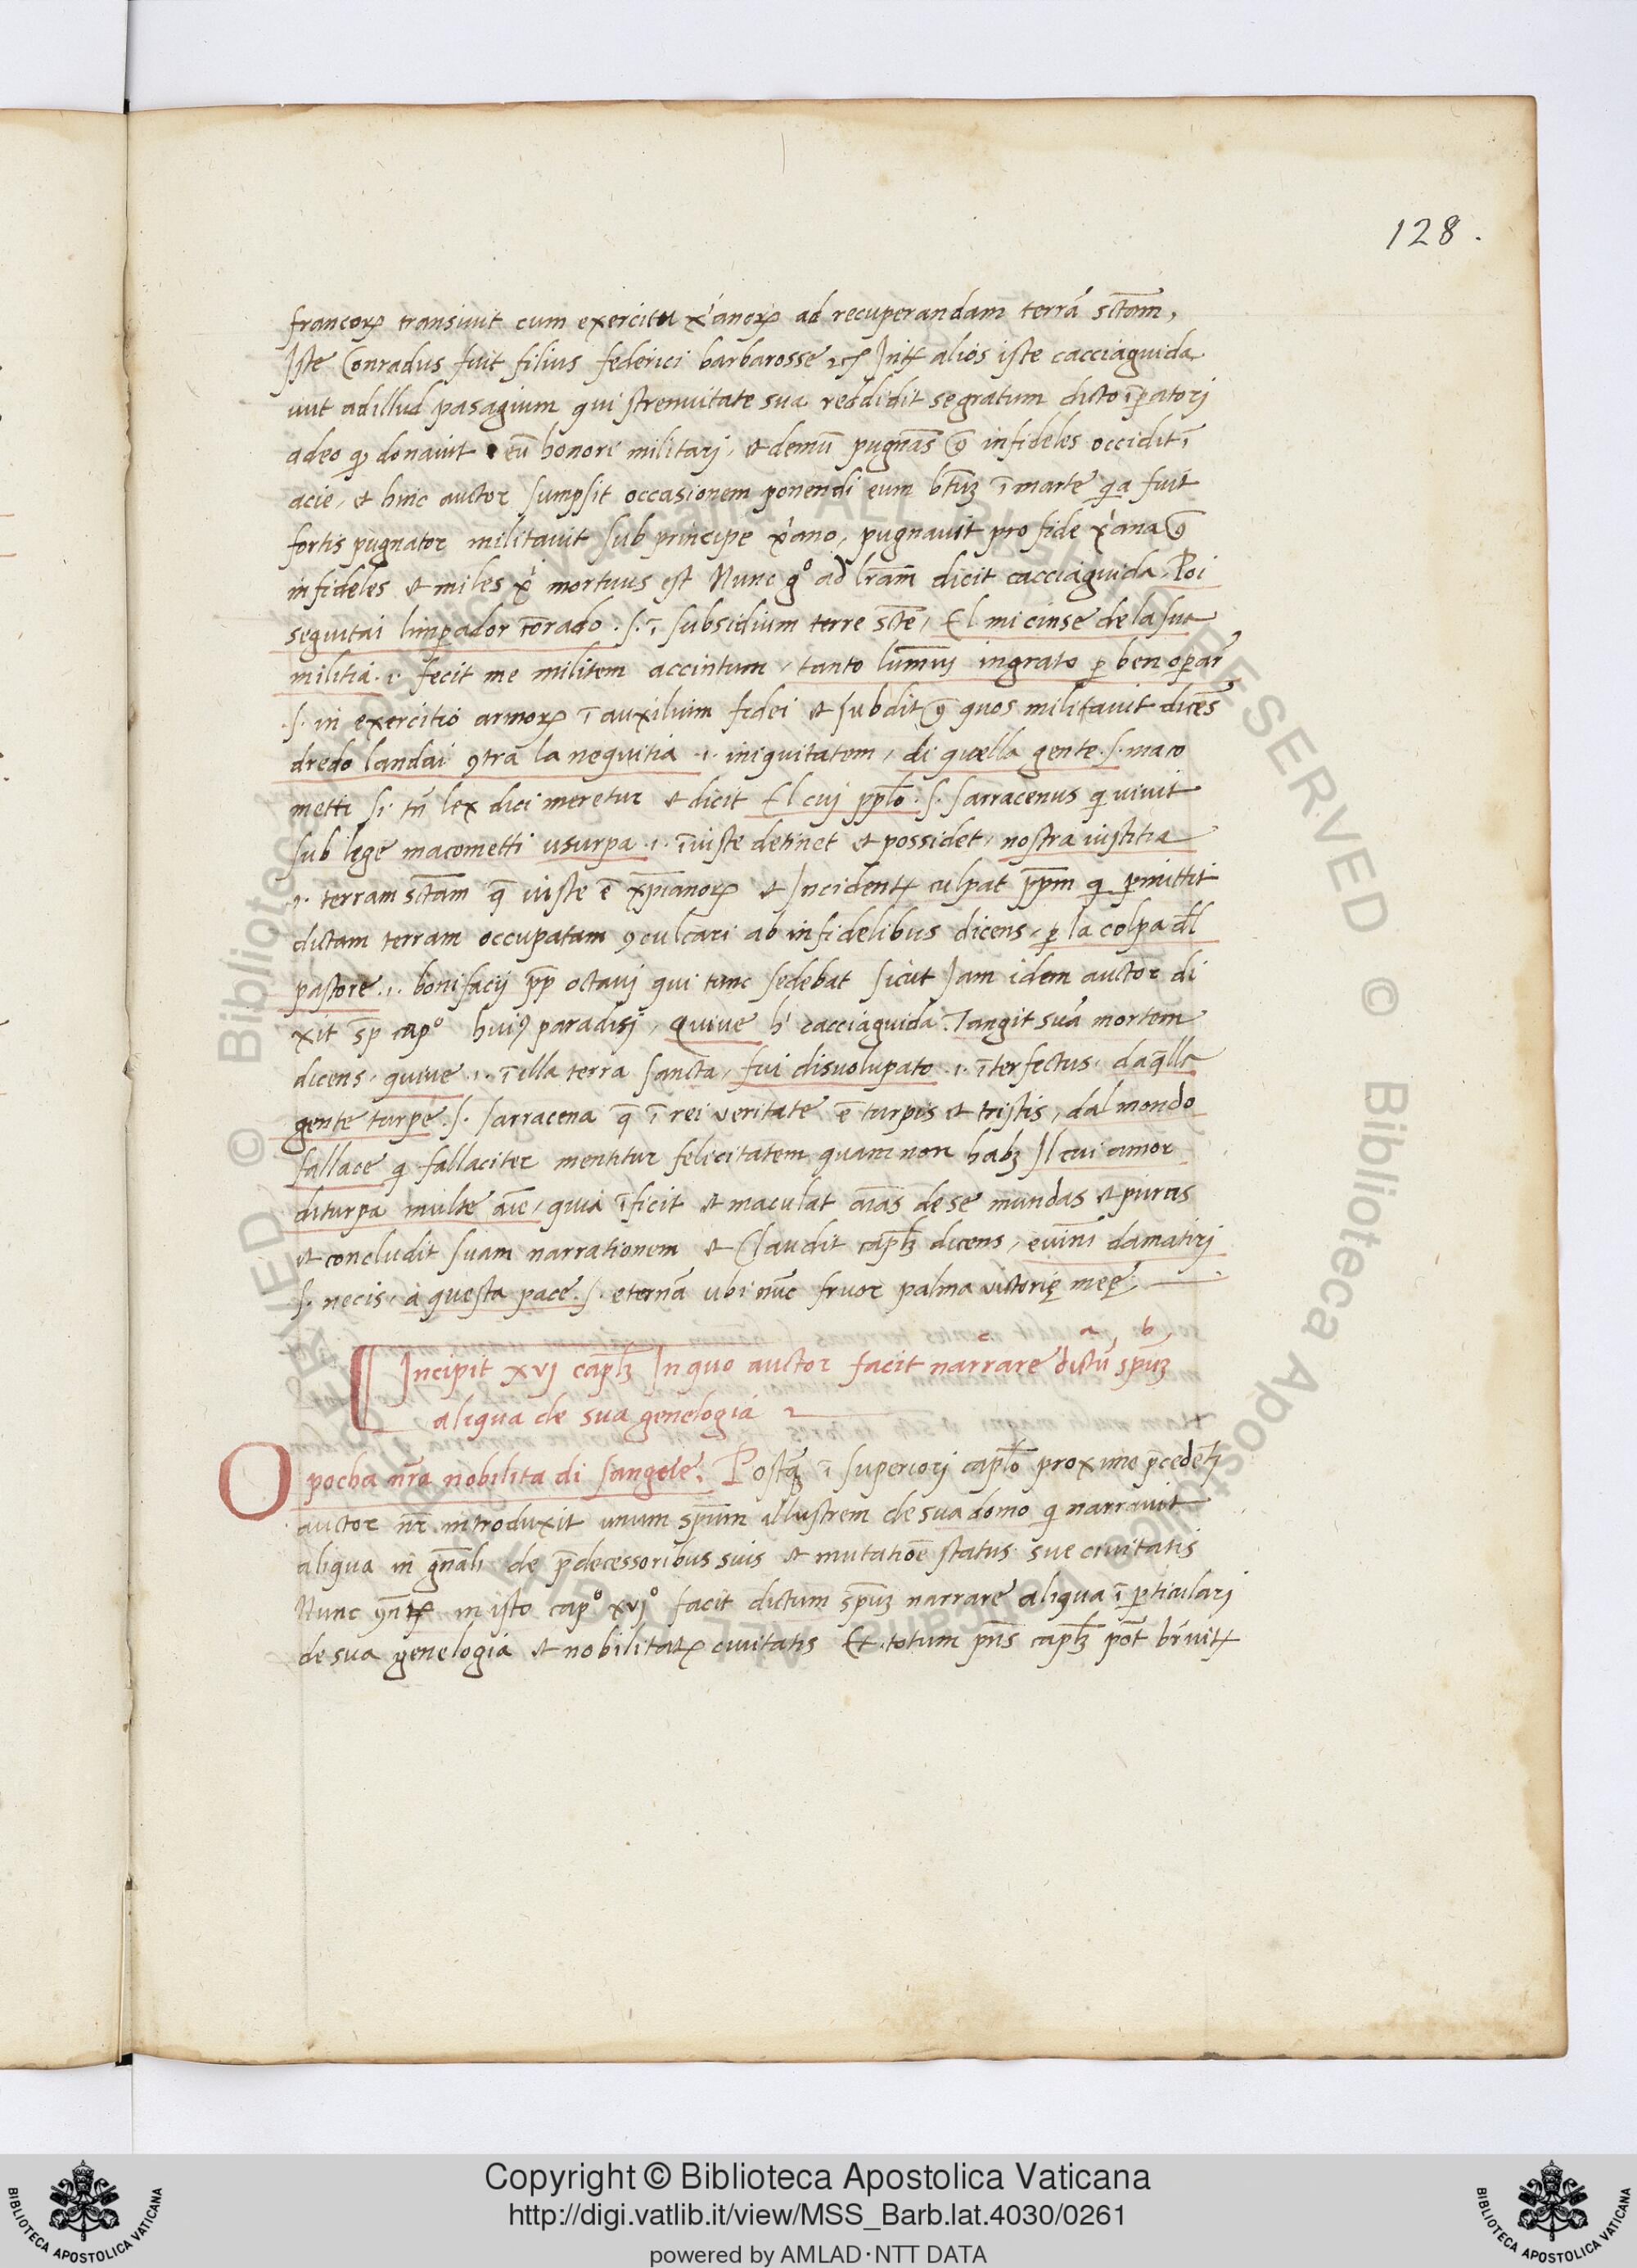 128.
francoꝝ transivit cum exercitu xʼanoꝝ ad recuperandam terrā sctām,
Iste Conradus fuit filius federici barbarosse Int̄ alios iste cacciaguida
ivit ad illud pasagium qui strenuitate sua reddidit se gratum dicto īperatori
adeo ꝙ donavit eū honore militari, et demū pugnās ꝯ infideles occidit ī
acie, et hinc auctor sumpsit occasionem ponendi eum btuꝫ ī marte qia fuit
fortis pugnator militavit sub principe xʼano, pugnavit pro fide xʼana ꝯ
infideles et miles xʼ mortuus est Nunc gº ad lrām dicit cacciaguida, Poi
seguitai limperador corrado .s. ī subsidium terre scte, El mi cinse de la sua
militia .i. fecit me militem accintum, tanto li ingrato ꝑ ben operar
.s. in exercitio armoꝝ ī auxilium fedei et subdit ꝯ quos militavit dicēs
dredo landai ꝯtra la nequitia .i. iniquitatem, di quella gente .s. maco
metti si tn̄ lex dici meretur et dicit El cuj pplo .s. sarracenus qi vivit
sub lege macometti usurpa .i. īiuste detinet et possidet, nostra iustitia
.i. terram sctam q̄ iuste ē xp̄ianoꝝ et Incident̄ culpat ppm qi ꝑmittit
dictam terram occupatam ꝯculcari ab infidelibus dicens, ꝑ la colpa dl
pastore .i. bonifacij pp octavj qui tunc sedebat sicut Iam idem auctor di
xit sp capº huiꝰ paradisj, Quive hʼ cacciaguida Tangit suā mortem
dicens, quive .i. ī illa terra sancta, fui disvolupato .i. īterfectus, da q̄lla
gente turpe .s. sarracena q̄ ī rei veritate ē turpis et tristis, dal mondo
fallace qi fallaciter mentitur felicitatem quam non habꝫ Il cui amor
diturpa multe aīe, quia īficit et maculat aīas de se mundas et puras
et concludit suam narrationem et Claudit capłꝫ dicens, e vinni da matirj
.s. necis, a questa pace .s. eternā ubi nūc fruor palma victorię meę.
c a b
Incipit xvj capłꝫ In quo auctor facit narrare dictū spūꝫ
aliqua de sua genelogia
O pocha nrā nobilita di sangue. Postq̄ ī superiorj caplo proximo p̄cedētj
auctor nr̄ introduxit unum spūm illustrem de sua domo qi narravit
aliqua in gn̄ali de p̄decessoribus suis et mutatiōe status sue civitatis
Nunc ꝯn̄t̄ in isto capº xvjº facit dictum spūꝫ narrare aliqua ī ꝑticularj
de sua genelogia et nobilitate civitatis Et totum pn̄s capłꝫ pōt brʼuit̄
Copyright © Biblioteca Apostolica Vaticana
http://digi.vatlib.it/view/MSS_Barb.lat.4030/0261
powered by AMLAD·NTT DATA
BIBLIOTECA APOSTOLICA VATICANA
BIBLIOTECA APOSTOLICA VATICANA